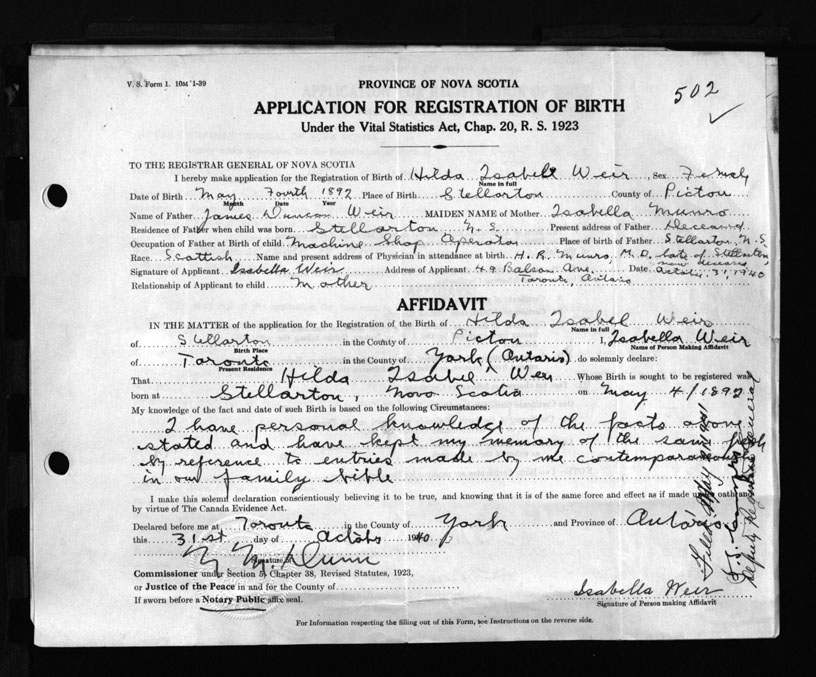 V. S. Form 1. 10M '1-39
PROVINCE OF NOVA SCOTIA
502
APPLICATION FOR REGISTRATION OF BIRTH
Under the Vital Statistics Act, Chap. 20, R. S. 1923
TO THE REGISTRAR GENERAL OF NOVA SCOTIA
I hereby make application for the Registration of Birth of Hilda Isabell Weir, Sex Female
Name in full
Date of Birth May Fourth 1892 Place of Birth Stellarton County of Pictou
Month Date Year
Name of Father James Duncan Weir MAIDEN NAME of Mother Isabella Munro
Residence of Father when child was born Stellarton N. S. Present address of Father Deceased
Occupation of Father at Birth of child Machine Shop Operator Place of birth of Father Stellarton, N. S.
Race Scottish Name and present address of Physician in attendance at birth H. R. Munro, M. D. late of Stellarton
now deceased
Signature of Applicant Isabella Weir Address of Applicant 49 Balsam Ave. Date October 31, 1940
Toronto, Ontario
Relationship of Applicant to child Mother
AFFIDAVIT
IN THE MATTER of the application for the Registration of the Birth of Hilda Isabel Weir
Name in full
of Stellarton in the County of Pictou I, Isabella Weir
Birth Place Name of Person Making Affidavit
of Toronto in the County of York (Ontario) do solemnly declare:
Present Residence
That Hilda Isabel Weir Whose Birth is sought to be registered was
born at Stellarton, Nova Scotia on May 4/1892
My knowledge of the fact and date of such Birth is based on the following Circumstances:
I have personal knowledge of the facts above
stated and have kept my memory of the same fresh
by reference to entries made by me contemporaneously
in our family bible
I make this solemn declaration conscientiously believing it to be true, and knowing that it is of the same force and effect as if made under oath and
by virtue of The Canada Evidence Act.
Declared before me at Toronto in the County of York and Province of Ontario
this 31st day of October 1940
Signature of
Commissioner under Section 5, Chapter 38, Revised Statutes, 1923,
or Justice of the Peace in and for the County of
If sworn before a Notary Public affix seal.
Isabella Weir
Signature of Person making Affidavit
For Information respecting the filling out of this Form, see Instructions on the reverse side.
Filed May 1941
Deputy Registrar General